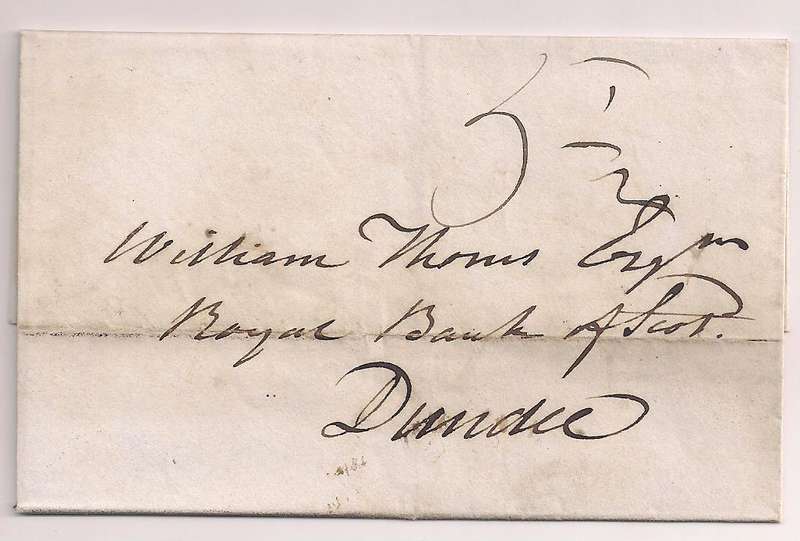 5 ½
William Thoms Esqre
Royal Bank of Scot.
Dundee